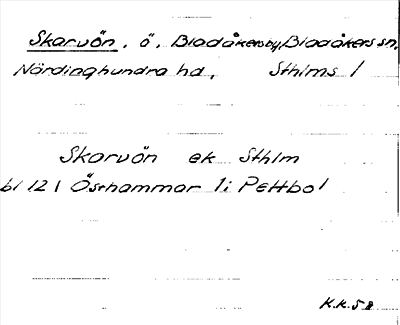 Skarvön, ö, Bladåkersby, Bladåkers sn,
Närdinghundra hd, Sthlms l
Skarvön ek Sthlm
bl 121 Östhammar li Pettbol
K.K.58